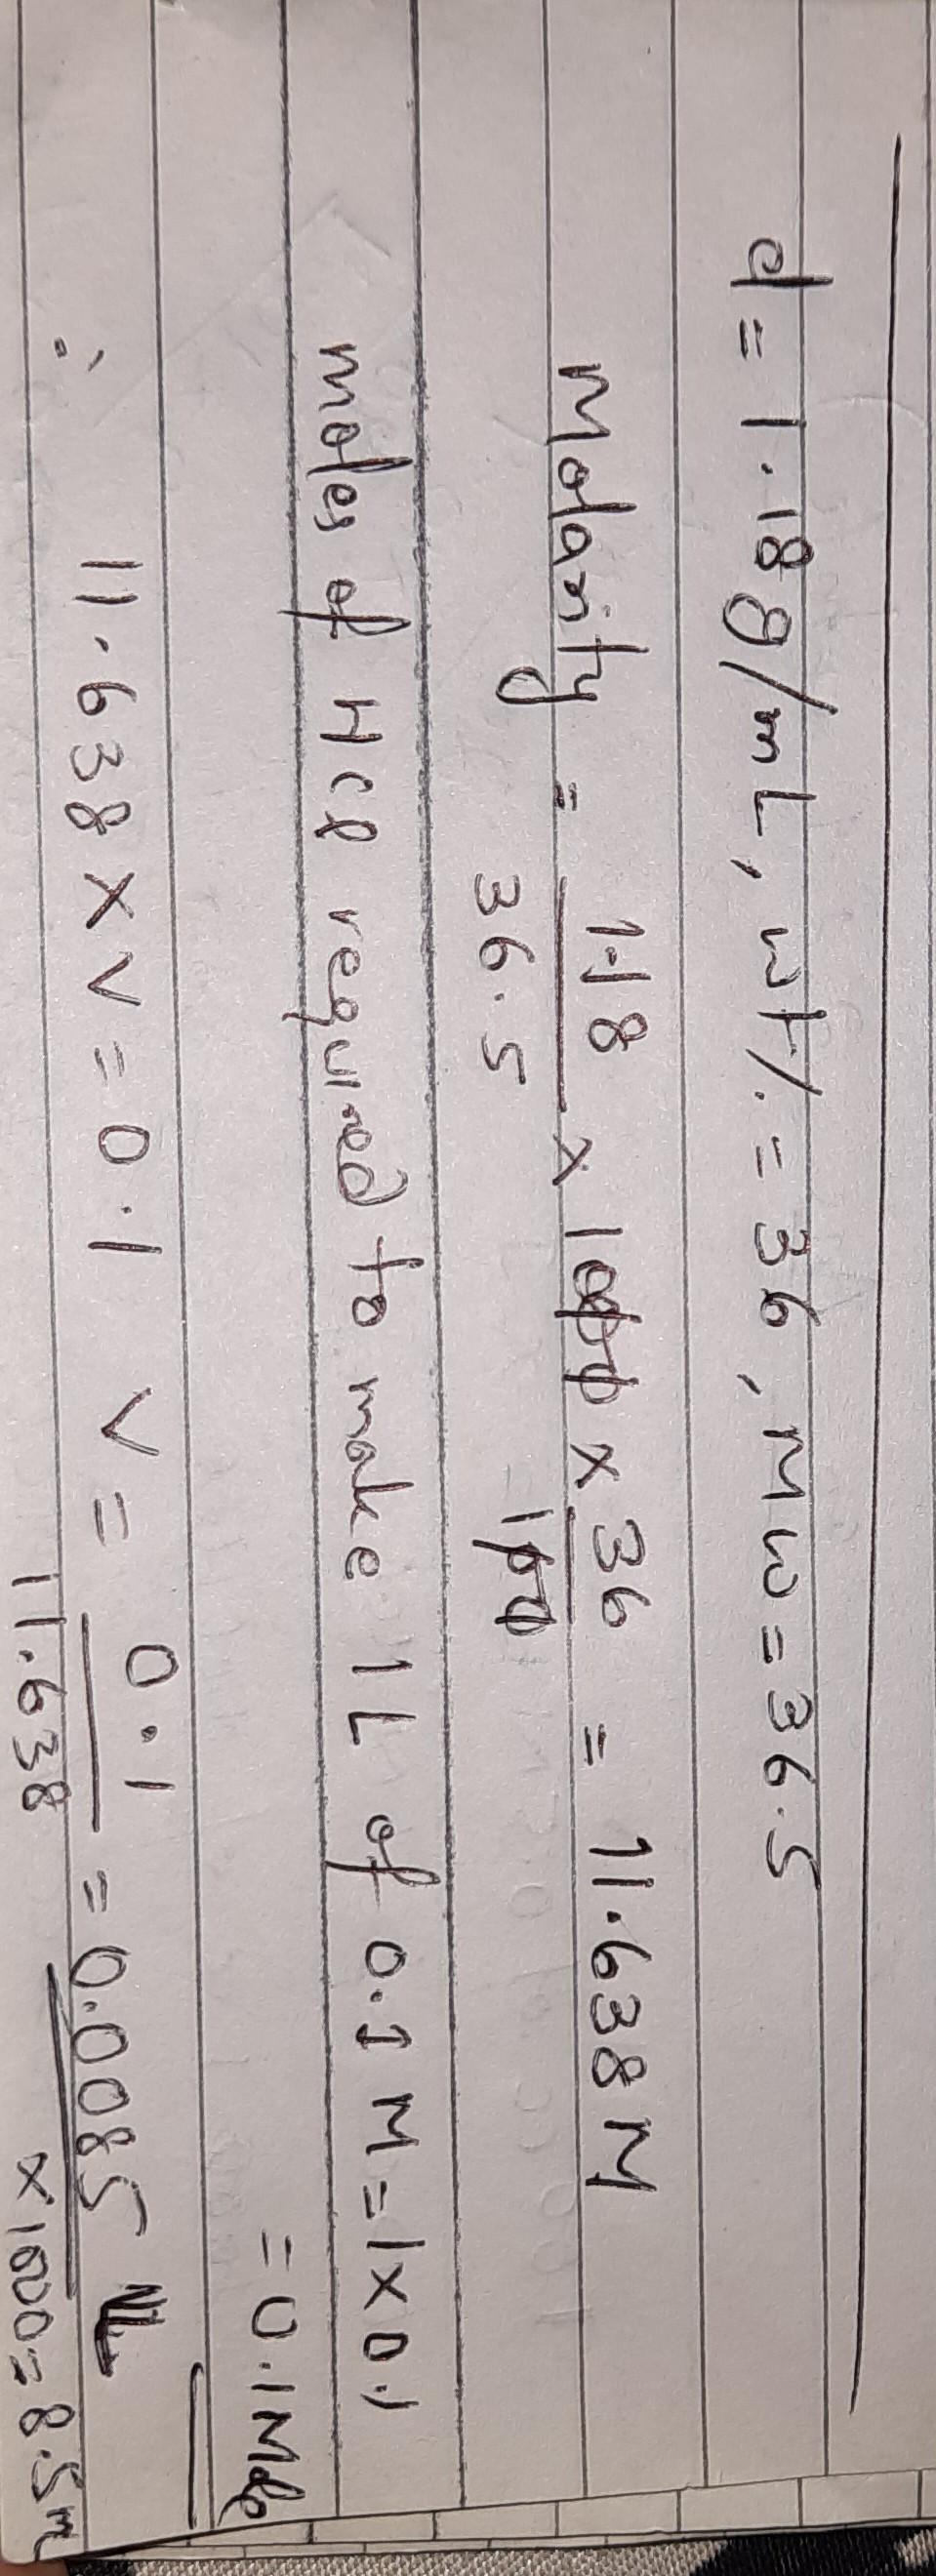 d = 1.18g/mL, wt% = 36, Mw = 36.5
Molarity = 1.18/36.5 × 1000 × 36/100 = 11.638 M
moles of HCl required to make 1L of 0.1 M = 1×0.1
= 0.1 Mole
∴ 11.638 × V = 0.1 V = 0.1/11.638 = 0.0085 L
×1000 = 8.5m